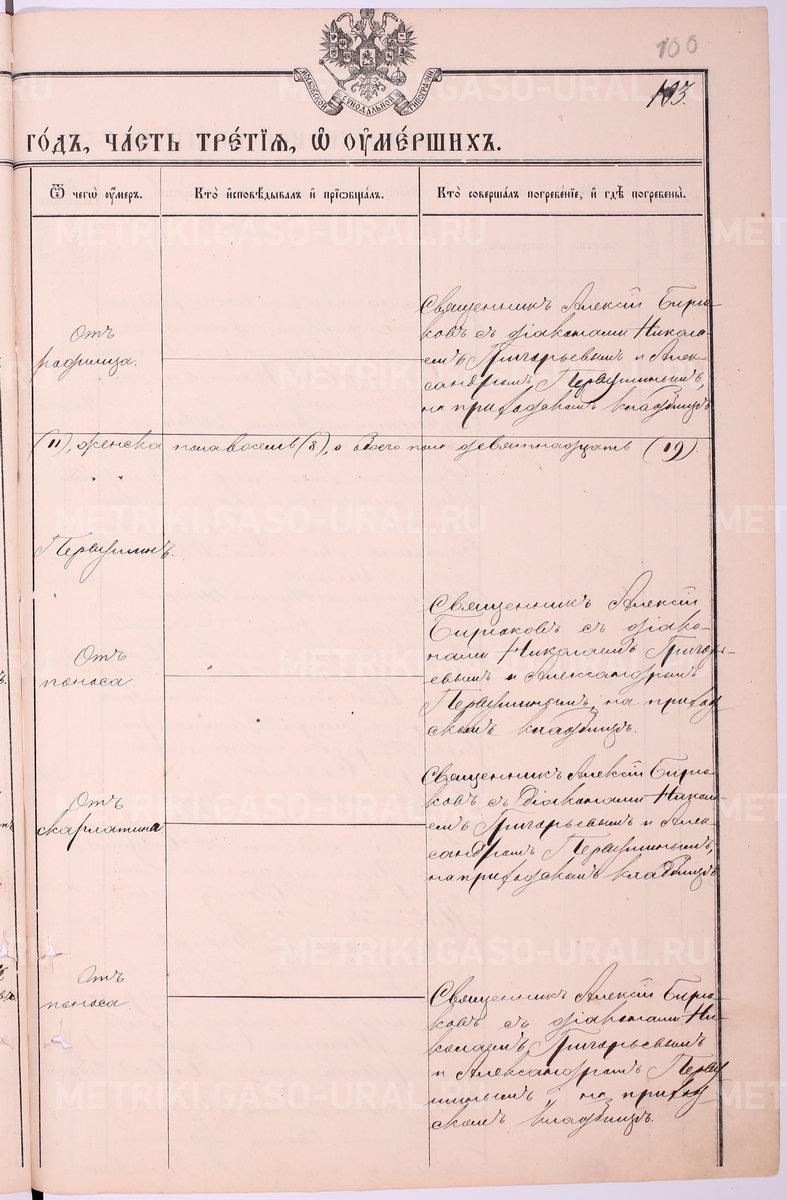 100
103.
МОСКОВСКОЙ СѴНОДАЛЬНОЙ ТИПОГРАФІИ
ГО́ДЪ, ЧА́СТЬ ТРЕ́ТІѦ, Ѡ҆ ОУ҆МЕ́РШИХЪ.
Ѿ чегѡ̀ оу҆́меръ.
Кто̀ и҆сповѣ́дывалъ и҆ прїѡбща́лъ.
Кто̀ соверша́лъ погребе́нїе, и҆ гдѣ̀ погребены̀.
Отъ
родимца.
Священникъ Алексій Бирю-
ковъ съ діаконами Никола-
емъ Григорьевымъ и Алек-
сандромъ Первушинымъ,
на приходскомъ кладбищѣ
(11), женска пола восемь (8), а обоего пола девятнадцать (19).
Первушинъ.
Отъ
поноса.
Священникъ Алексій
Бирюковъ съ діако-
нами Николаемъ Григорь-
евымъ и Александромъ
Первушинымъ, на приход-
скомъ кладбищѣ.
Отъ
скарлатины
Священникъ Алексій Бирю-
ковъ съ діаконами Никола-
емъ Григорьевымъ и Алек-
сандромъ Первушинымъ,
на приходскомъ кладбищѣ
Отъ
поноса.
Священникъ Алексій Бирю-
ковъ съ діаконами Ни-
колаемъ Григорьевымъ
и Александромъ Перву-
шинымъ, на приход-
скомъ кладбищѣ.
METRIKI.GASO-URAL.RU